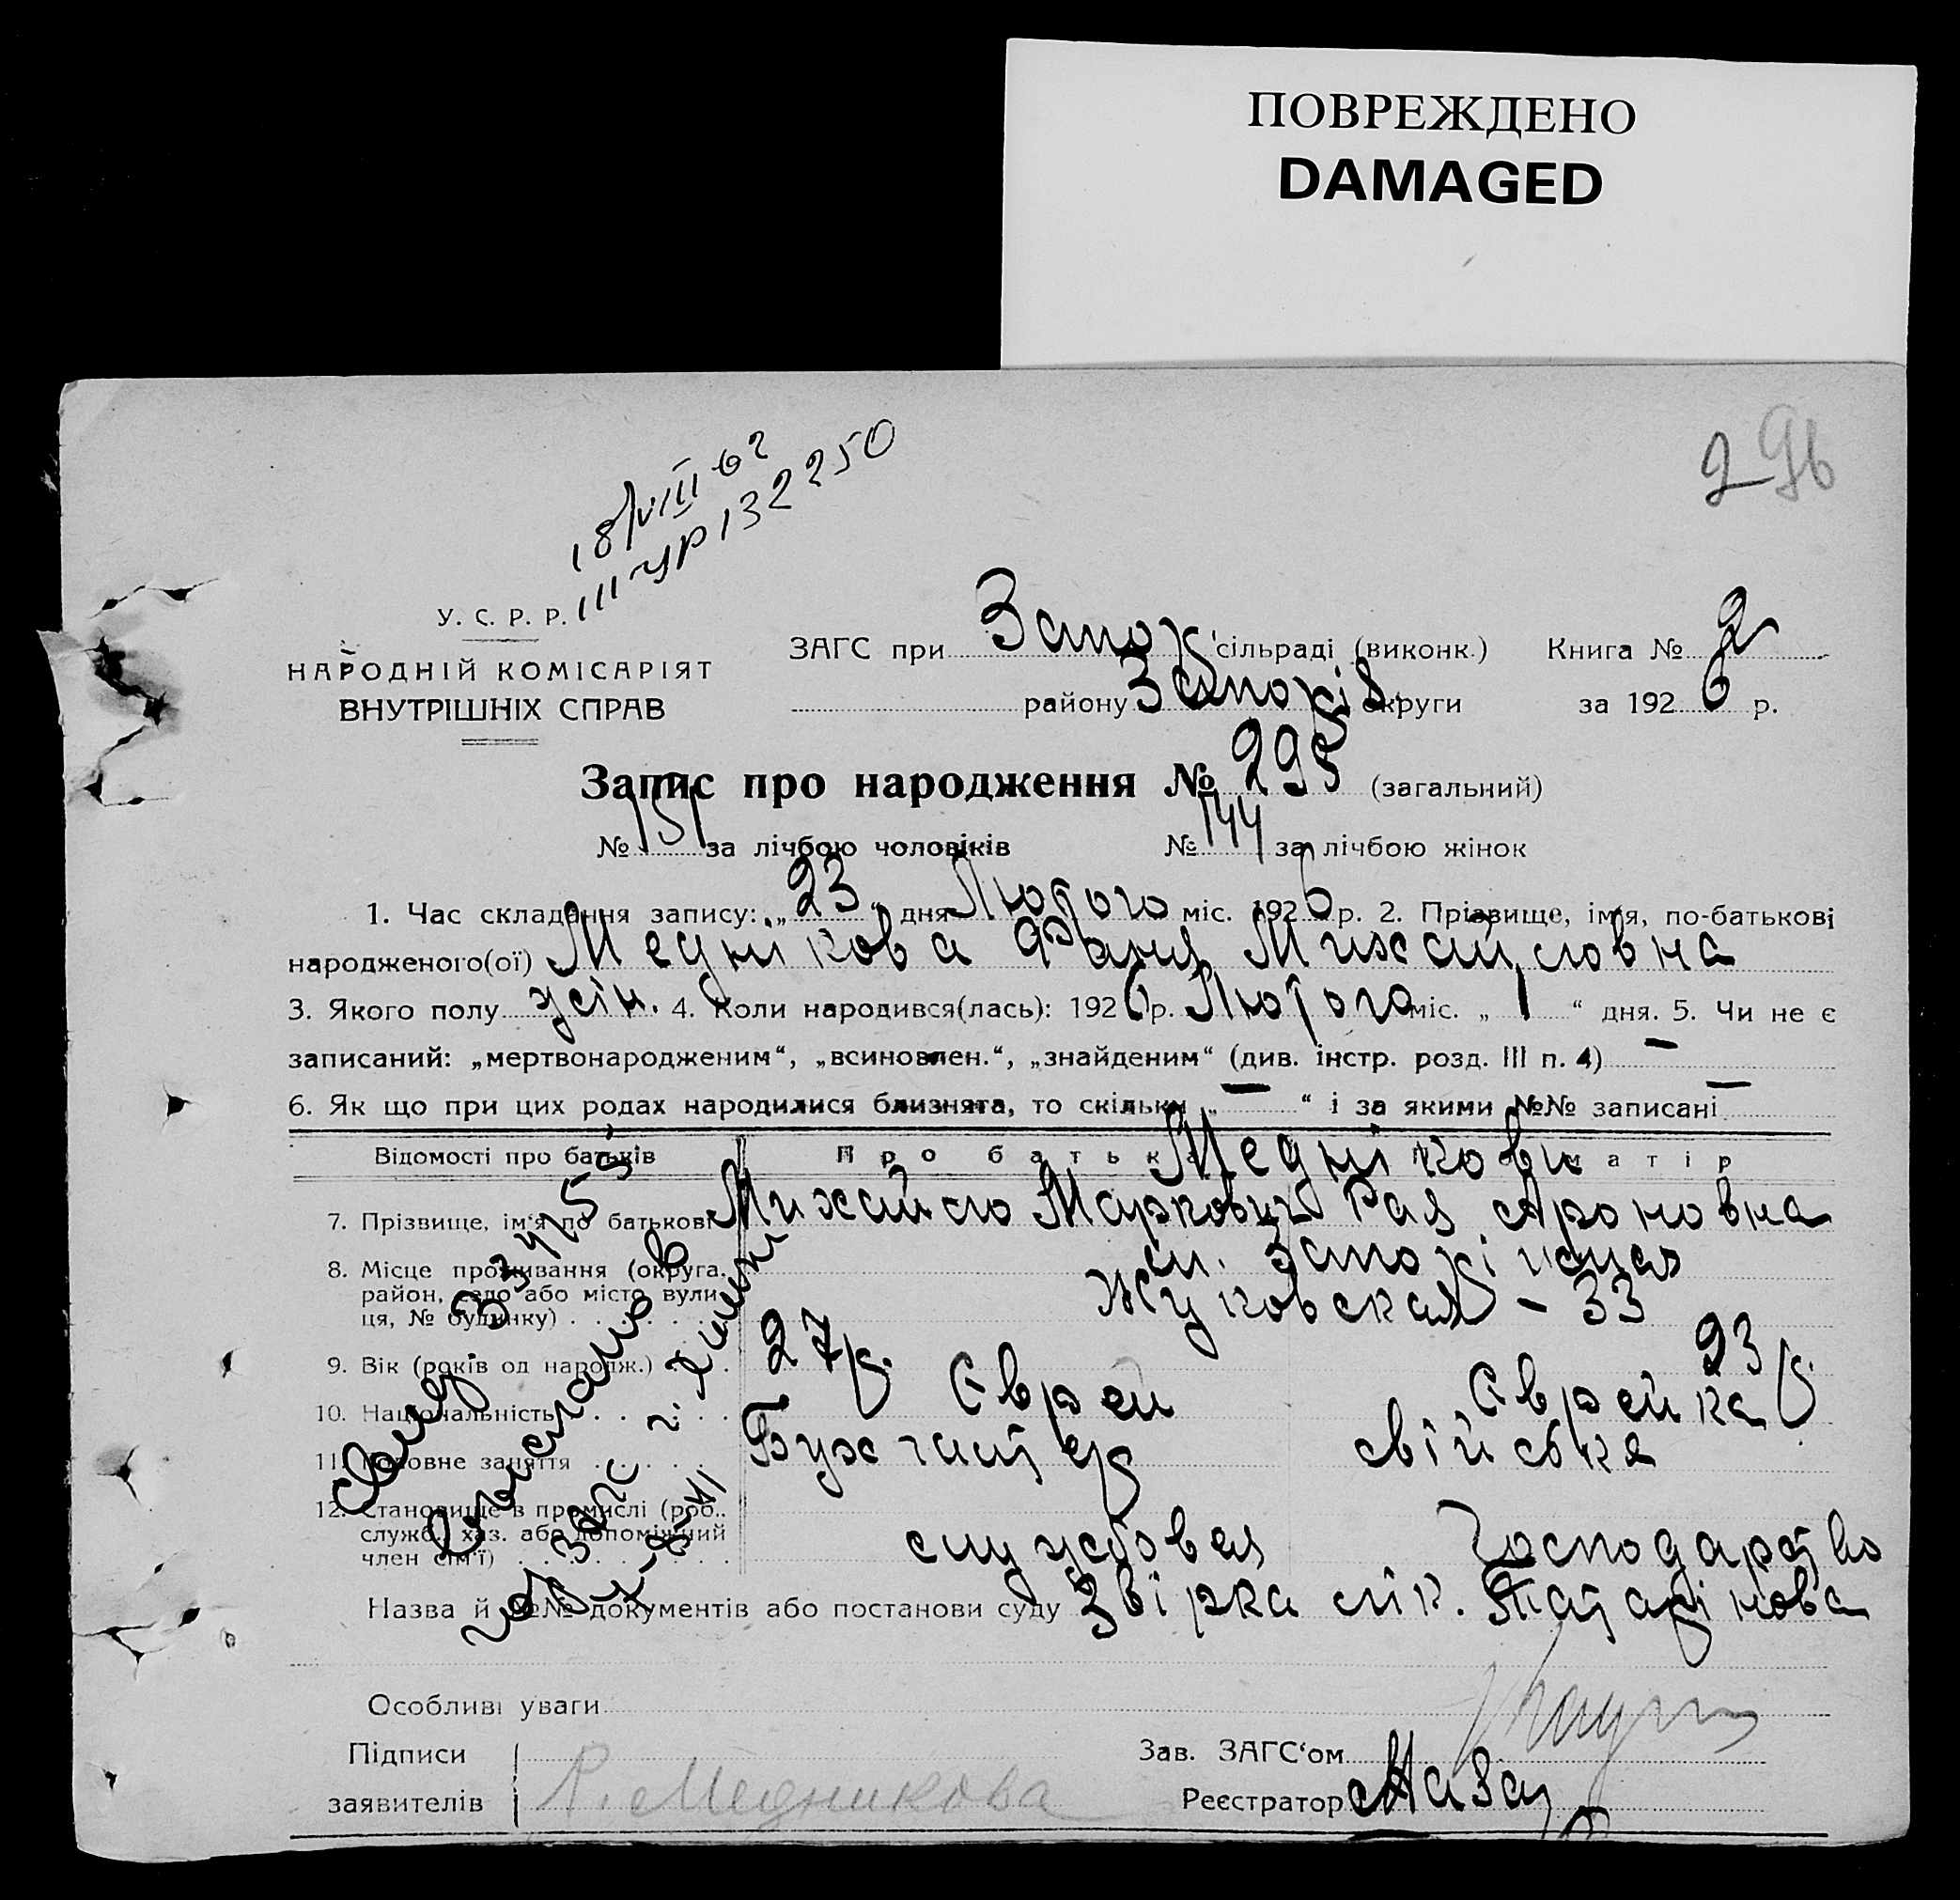 ПОВРЕЖДЕНО
DAMAGED
296
18/VIII 62
III-УР 132250
У. С. Р. Р.
НАРОДНІЙ КОМІСАРІЯТ
ВНУТРІШНІХ СПРАВ
ЗАГС при Запор сільраді (виконк.) Книга № 2
району Запорів округи за 1926 р.
Запис про народження № 295 (загальний)
№ 151 за лічбою чоловіків № 144 за лічбою жінок
1. Час складання запису: „23“ дня Лютого міс. 1926 р. 2. Прізвище, ім'я, по-батькові
народженого(ої) Меднікова Фаня Михайловна
3. Якого полу жін. 4. Коли народився(лась): 1926 р. Лютого міс. „1“ дня. 5. Чи не є
записаний: „мертвонародженим“, „всиновлен.“, „знайденим“ (див. інстр. розд. III п. 4) —
6. Як що при цих родах народилися близнята, то скільки „—“ і за якими №№ записані —
Відомості про батьків Про батька матір
Меднікови
7. Прізвище, ім'я по батькові Михайло Маркович Рая Ароновна
8. Місце проживання (округа, район, село або місто, вулиця, № будинку) м. Запоріжжя
Жуковская – 33
9. Вік (років од народж.) 27 р. 23 р.
10. Національність Єврей Єврейка
11. Головне заняття Бухгалтер свійське
12. Становище в промислі (роб., служб., хаз. або допоміжний член сім'ї) службовая Господарство
Назва й №№ документів або постанови суду Звірка лік. Татарінова
Особливі уваги
Підписи Зав. ЗАГС'ом
заявителів Р. Медникова Реєстратор